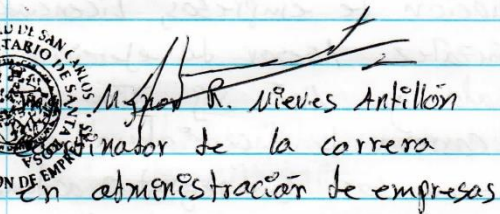 R. Nieves Antillón
Coordinador de la carrera
en administración de empresas